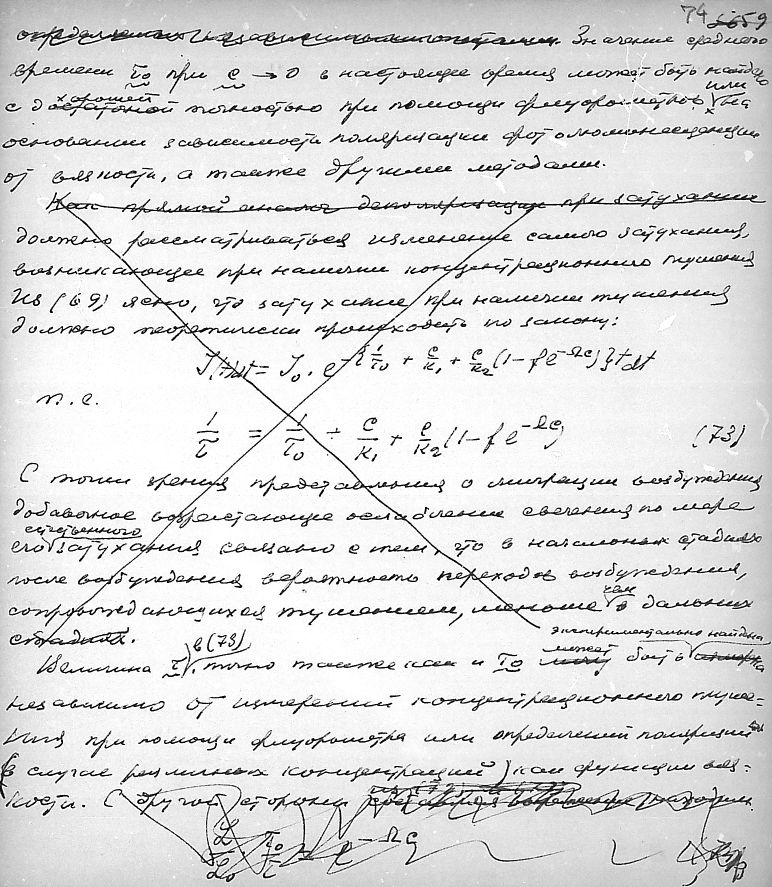 74 59
Значение среднего
времени τ₀ при c → 0 в настоящее время может быть найдено
с хорошей достаточной точностью при помощи флуорометров или на
основании зависимости поляризации фотолюминесценции
от вязкости, а также другими методами.
Как прямой аналог деполяризации при затухании
должно рассматриваться изменение самого затухания,
возникающее при наличии концентрационного тушения
Из (69) ясно, что затухание при наличии тушения
должно теоретически происходить по закону:
J(t)dt = J₀ · e^{-{1/τ₀ + c/k₁ + c/k₂ (1 - f e^{-Ωc})}t} dt
т.е.
1/τ = 1/τ₀ + c/k₁ + c/k₂ (1 - f e^{-Ωc}) (73)
С точки зрения представления о миграции возбуждения
добавочное возрастающее ослабление свечения по мере
его собственного затухания связано с тем, что в начальных стадиях
после возбуждения вероятность переходов возбуждения,
сопровождающихся тушением, меньше чем в дальних
стадиях.
Величина τ в (73), точно также как и τ₀ может быть экспериментально найдена
независимо от измерений концентрационного туше-
ния при помощи флуорометра или определений поляризации
(в случае различных концентраций) как функции вяз-
кости. С другой стороны
L/L₀ · τ₀/τ = e^{-Ωc}